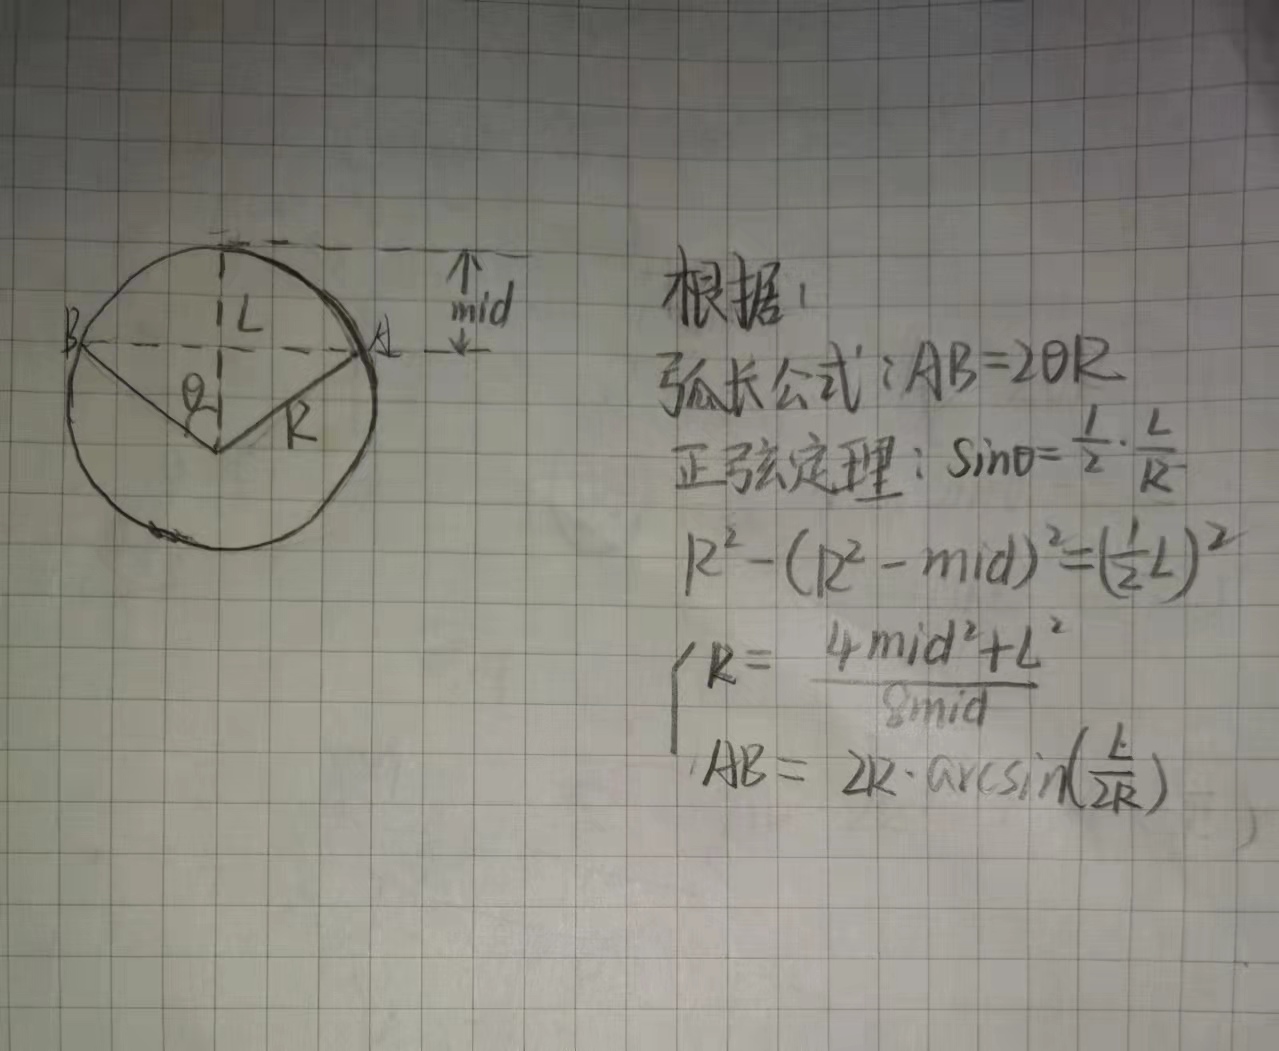 B
L
A
mid
θ
R
根据:
弧长公式:AB=2θR
正弦定理:sinθ=1/2·L/R
R²-(R²-mid)²=(1/2L)²
R= 4mid²+L²/8mid
AB= 2R·arcsin(L/2R)